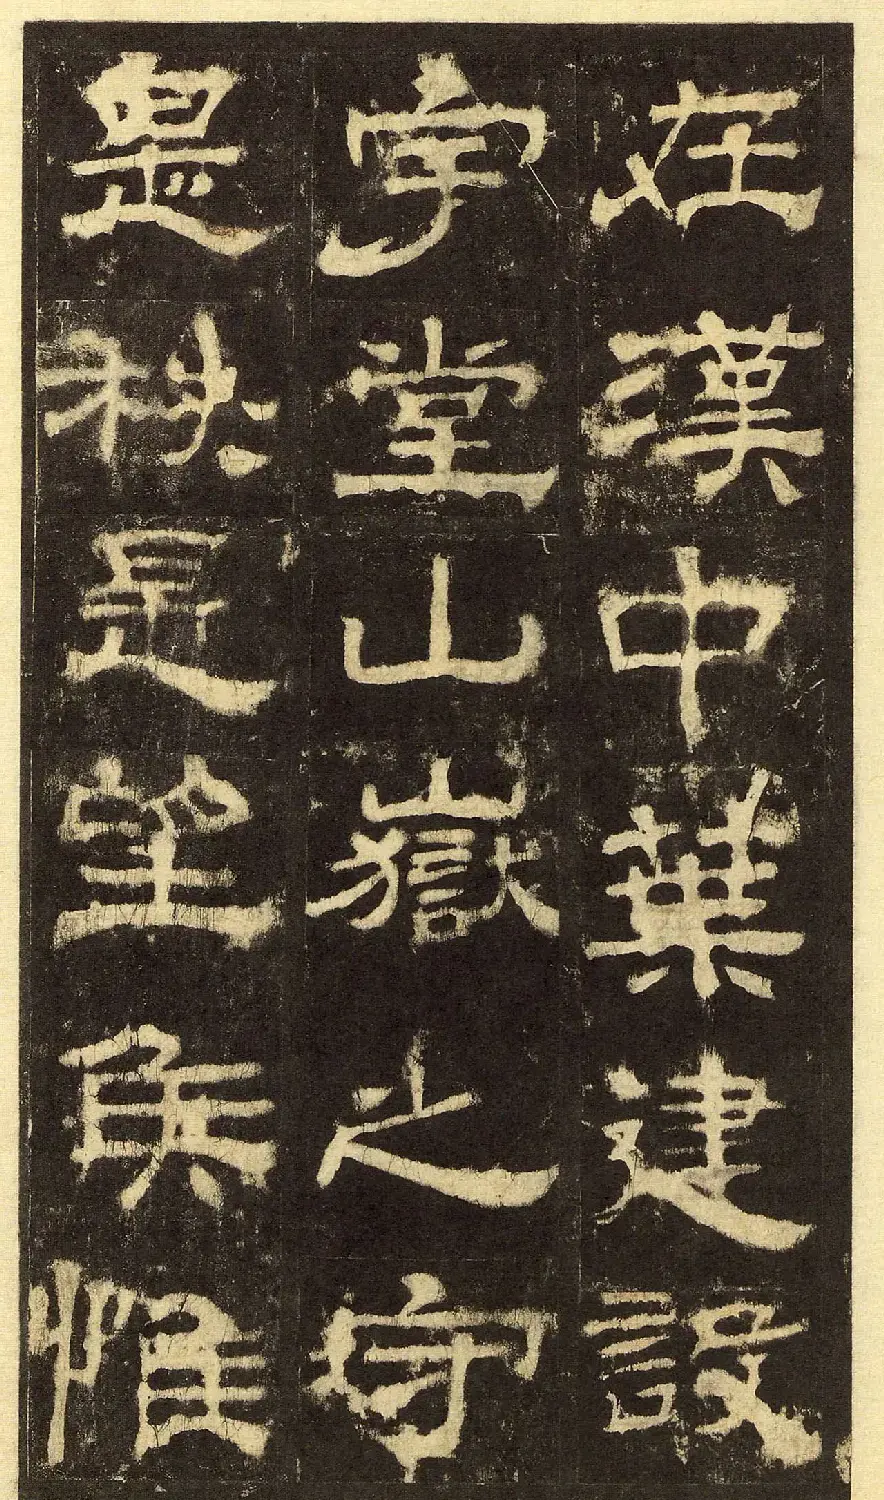 在漢中葉建設
宇堂山嶽之守
是秩是望侯惟